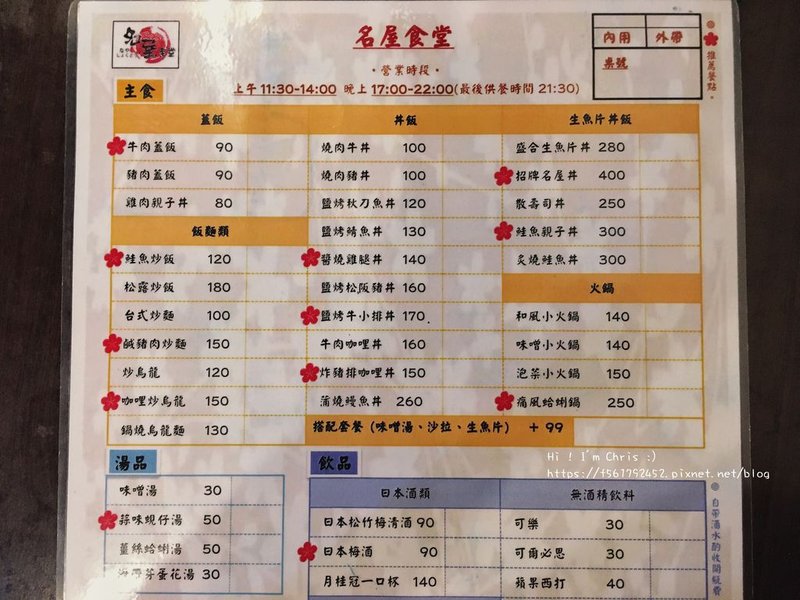 名屋食堂
內用 外帶
桌號
推薦餐點
·營業時段·
上午 11:30-14:00 晚上 17:00-22:00(最後供餐時間 21:30)
主食
蓋飯
牛肉蓋飯 90
豬肉蓋飯 90
雞肉親子丼 80
飯麵類
鮭魚炒飯 120
松露炒飯 180
台式炒麵 100
鹹豬肉炒麵 150
炒烏龍 120
咖哩炒烏龍 150
鍋燒烏龍麵 130
丼飯
燒肉牛丼 100
燒肉豬丼 100
鹽烤秋刀魚丼 120
鹽烤鯖魚丼 130
醬燒雞腿丼 140
鹽烤松阪豬丼 160
鹽烤牛小排丼 170
牛肉咖哩丼 160
炸豬排咖哩丼 150
蒲燒鰻魚丼 260
生魚片丼飯
盛合生魚片丼 280
招牌名屋丼 400
散壽司丼 250
鮭魚親子丼 300
炙燒鮭魚丼 300
火鍋
和風小火鍋 140
味噌小火鍋 140
泡菜小火鍋 150
痛風蛤蜊鍋 250
搭配套餐(味噌湯、沙拉、生魚片) +99
Hi ! I'm Chris :)
https://f561792452.pixnet.net/blog
湯品
味噌湯 30
蒜味蜆仔湯 50
薑絲蛤蜊湯 50
海帶芽蛋花湯 30
飲品
日本酒類
日本松竹梅清酒 90
日本梅酒 90
月桂冠一口杯 140
無酒精飲料
可樂 30
可爾必思 30
蘋果西打 40
自帶酒水酌收開瓶費